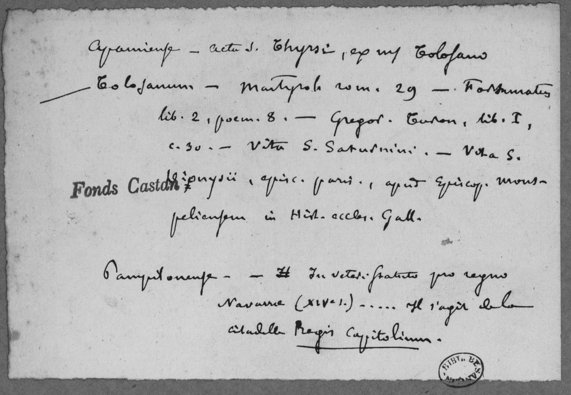 Apamiense — acta S. Thyrsi, ex ms Tolosano
Tolosanum — Martyrol. rom. 29 — Fortunatus
lib. 2, poem. 8. — Gregor. Turon, lib. I,
c. 30. — Vita S. Saturnini. — Vita S.
Dionysii, episc. paris., apud Episcop. Mons-
Fonds Castan
peliensem in Hist. eccles. Gall.
Pampilonense. — In veteri statuto pro regno
Navarrae (XIVe s.) ..... Il s'agit de la
citadelle Regis Capitolium.
BIBL. BESANÇON